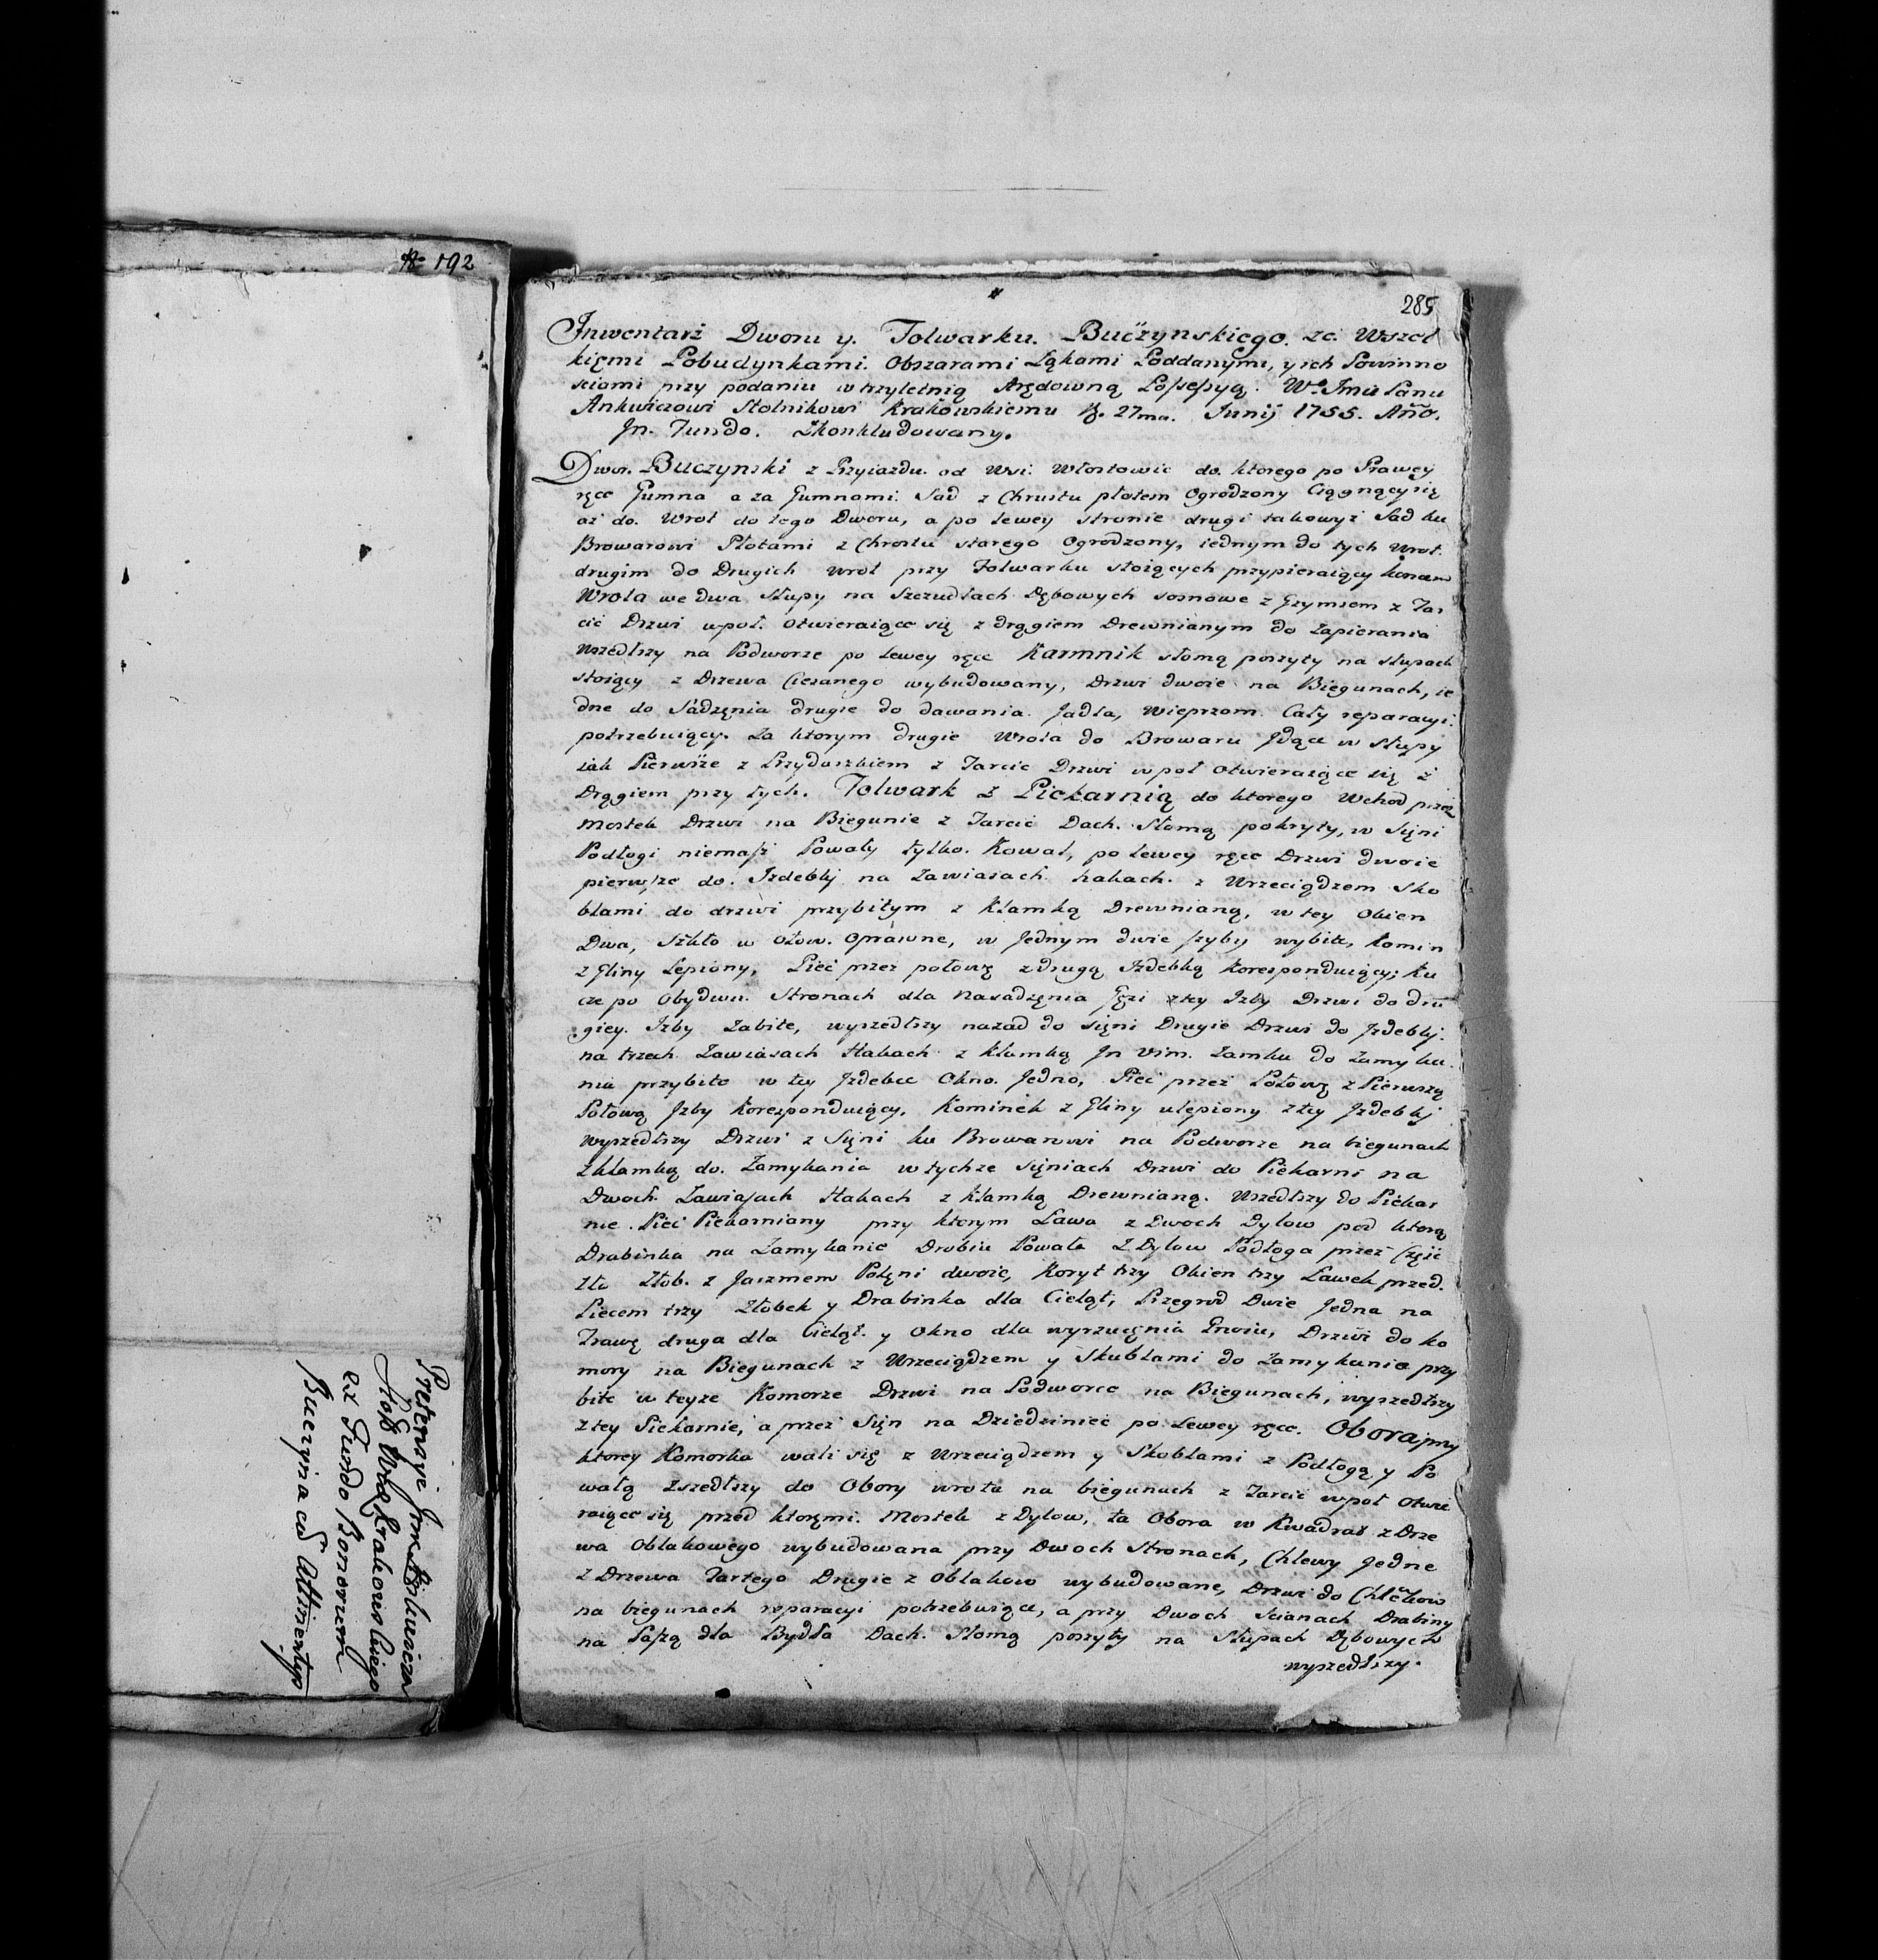 № 192
Pretensye Jmci
Stol Krakowskiego
ex Fundo Borowzem
Buczyna cũ Attinentys
285
Inwentarz Dworu y. Folwarku. Buczynskiego. ze. Wszel
kięmi Pobudynkami. Obszarami Łąkami Poddanymi, y ich Powinno
sciami przy podaniu w trzyletnią Arędowną Possessyą. Wº Jmci Panu
Ankwiczowi Stolnikowi Krakowskiemu 27ma. Junij 1755. Año.
Jn. Fundo. Zkonkludowany.
Dwor. Buczynski z Przyiazdu. od Wsi. Włostowic do. ktorego po Prawey
ręce Gumna a za Gumnami. Sad z Chrustu płotem Ogrodzony Ciągnący się
aż do. Wrot do tego Dworu, a po lewey stronie drugi takowyż Sad ku
Browarowi Płotami z Chrostu starego Ogrodzony, iednym do tych Wrot.
drugim do Drugich wrot przy Folwarku stoiących przypieraiący koncem
Wrota we dwa słupy na szczudłach Dębowych sosnowe z Gzymsem z Tar
cic Drzwi wpoł. otwieraiące się z drągiem Drewnianym do Zapierania
Wszedłszy na Podworze po lewey ręce Karmnik słomą poszyty na słupach
stoiący z Drzewa Ciesanego wybudowany, Drzwi dwoie na Biegunach, ie
dne do Sádzęnia drugie do dawania. Jadła, Wieprzom. Cały reparacyi.
potrzebuiący. Za ktorym drugie Wrota do Browaru Jdące w słupy
iak Pierwsze z Przydaszkiem z Tarcic Drzwi wpoł otwieraiące się z
Drągiem przy tych. Folwark z Piekarnią do ktorego Wchod przez
Mostek Drzwi na Biegunie z Tarcic Dach. Słomą pokryty, w Sięni
Podłogi niemasz Powały tylko. Kowal, po lewey ręce Drzwi dwoie
pierwsze do. Jzdebky na Zawiasach hakach. z Wrzeciądzem Sko
blami do drzwi przybitym z Klamką Drewnianą, w tey Okien
Dwa, Szkło w Ołow. Oprawne, w Jednym dwie szyby wybite, Komin
z Gliny Lepiony, Piec przez połowę z drugą Jzdebką Korespondujący; Ku
cze po Obydwu. Stronach dla Nasadzęnia Gęsi z tey Jzby Drzwi do dru
giey. Jzby Zabite, wyszedłszy nazad do sięni Drugie Drzwi do Jzdebky.
na trzech Zawiasach Hakach z Klamką Jn vim. Zamku do Zamyka
nia przybite w tey Jzdebce Okno. Jedno, Piec przez Połowę z Pierwszą
Połową Jzby Korespondujący. Kominek z Gliny ulepiony z tey Jzdebky
Wyszedłszy Drzwi z Sięni ku Browarowi na Podworze na biegunach
z klamką do. Zamykania w tychże sięniach Drzwi do Piekarni na
Dwoch. Zawiasach Hakach z Klamką Drewnianą. Wszedłszy do Piekar
nie. Piec Piekarniany przy ktorym Ława z Dwoch Dylow pod ktorą
Drabinka na Zamykanie Drobiu Powała Z Dylow Podłoga przez częśc
zła Złob. z Jaszmem Polęni dwoie, Koryt trzy Okien trzy Ławek przed.
Piecem trzy Złobek y Drabinka dla Cieląt, Przegrod Dwie Jedna na
Trawę druga dla Cieląt. y Okno dla wyrzucęnia Gnoiu, Drzwi do ko
mory na Biegunach z Wrzeciądzem y Skublami do Zamykania przy
bite w teyże Komorze Drzwi na Podworce na Biegunach, wyszedłszy
z tey Piekarnie, a przez Sięn na Dziedziniec po lewey ręce. Obora przy
ktorey Komorka wali się z Wrzeciądzem y Skoblami z Podłogą y Po
wałą Zszedłszy do Obory wrota na biegunach z Tarcic wpoł Otwie
raiące się przed ktoręmi. Mostek z Dylow, ta Obora w Kwadrat z Drze
wa Oblakowego wybudowana przy Dwoch Stronach, Chlewy Jedne
z Drzewa Tartego Drugie z Oblakow wybudowane, Drzwi do Chlewkow
na biegunach reparacyi potrzebuiące, a przy Dwoch Scianach Drabiny
na Paszą dla Bydła Dach. Słomą poszyty na Słupach Dębowych
wyszedłszy.